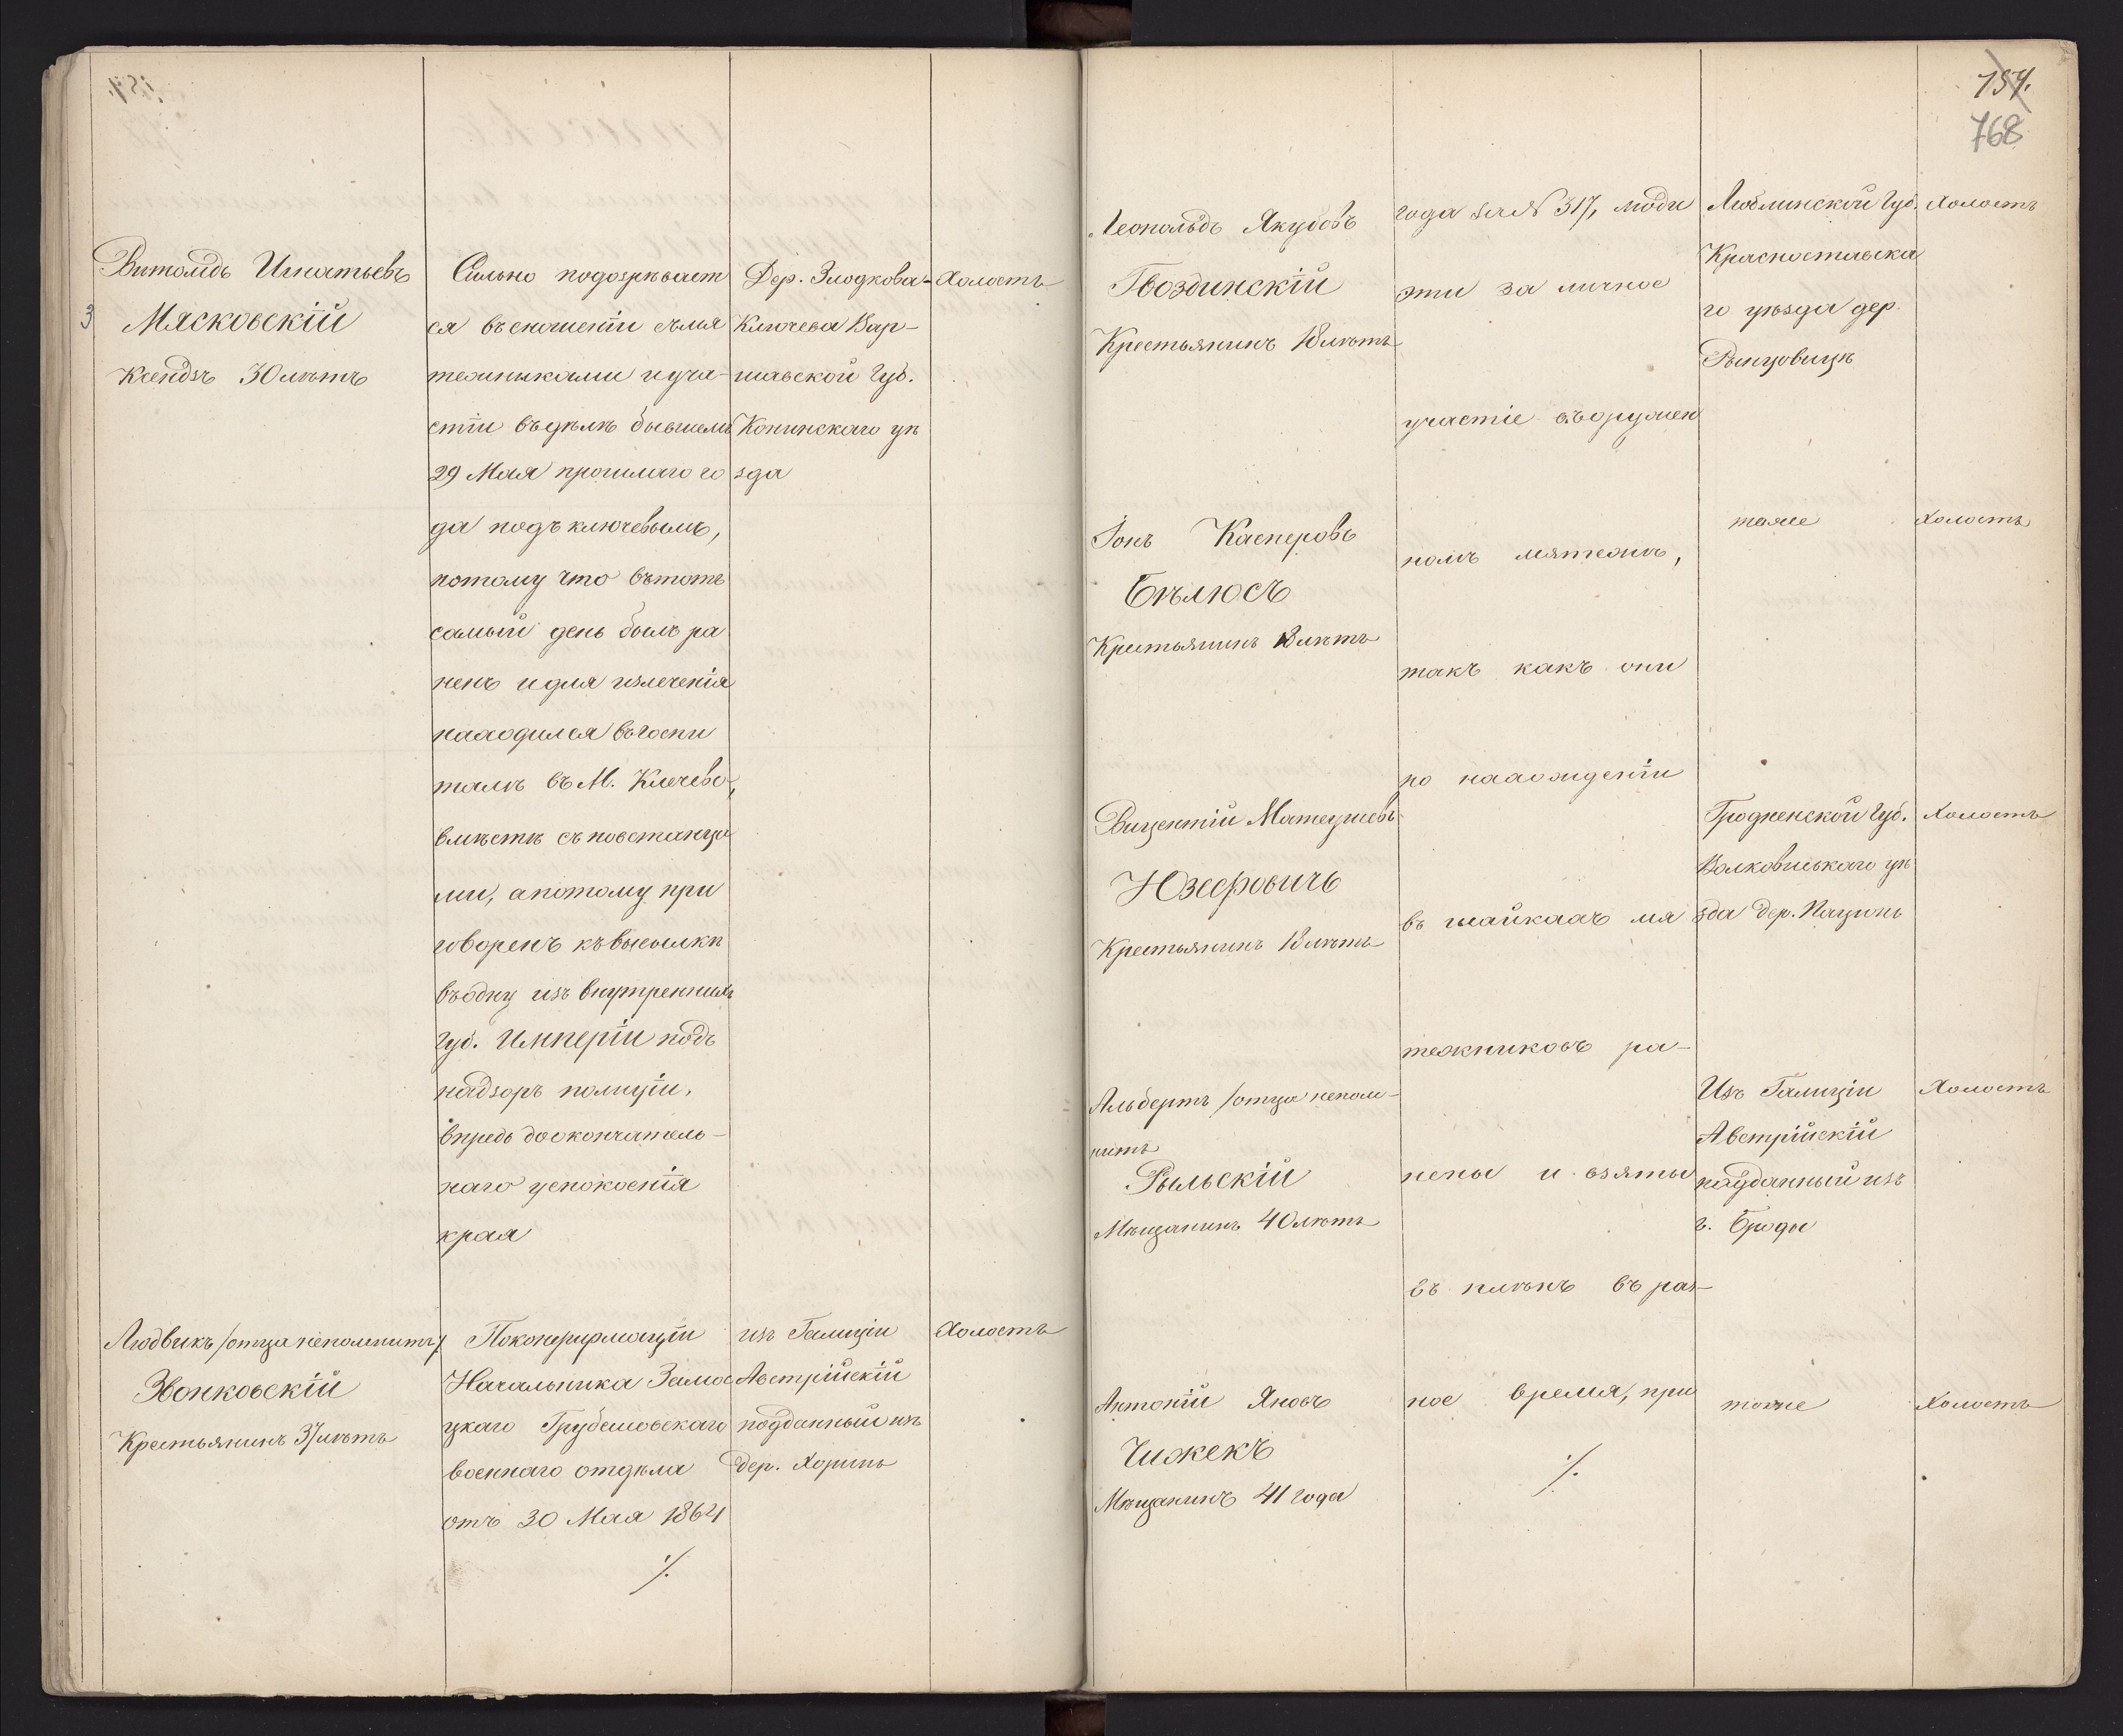 3
Витольдъ Игнатьевъ
Мясковскій
Ксендзъ 30 лѣтъ
Сильно подозрѣвает
ся въ сношеніи съ мя
тежниками и уча-
стіи въ дѣлѣ бывшемъ
29 Мая прошлаго го
да подъ Ключевымъ,
потому что въ тотъ
самый день былъ ра
ненъ и для излеченія
находился въ госпи
талѣ въ М. Ключево,
вмѣстѣ съ повстанца
ми, а потому при
говоренъ къ высылкѣ
въ одну изъ внутреннихъ
Губ. Имперіи подъ
надзоръ полиціи,
впредь до окончатель-
наго успокоенія
края
Дер. Злодкова-
Ключева Вар-
шавской Губ.
Конинскаго уѣ
зда
Холостъ
Людвикъ /отца непомнитъ/
Звонковскій
Крестьянинъ 37 лѣтъ
По конфирмаціи
Начальника Замос
цкаго Грубешовскаго
военнаго отдѣла
отъ 30 Мая 1864
./.
изъ Галиціи
Австрійскій
подданный изъ
дер. Хорынь
Холостъ
157.
768
Леопольдъ Якубовъ
Гвоздинскій
Крестьянинъ 18 лѣтъ
года за N 317, люди
эти за личное
участіе въ оружен
Люблинской Губ.
Красноставска
го уѣзда дер.
Рынцовицъ
Холостъ
Іонъ Касперовъ
Бѣлюсъ
Крестьянинъ 18 лѣтъ
номъ мятежѣ,
такъ какъ они
по нахожденіи
тоже
Холостъ
Вицентій Матеушевъ
Юзефовичъ
Крестьянинъ 18 лѣтъ
въ шайкахъ мя
тежниковъ ра-
Гродненской Губ.
Волковиськаго уѣ
зда Дер. Пацинь
Холостъ
Альбертъ /отца непом-
нитъ
Рыльскій
Мѣщанинъ 40 лѣтъ
нены и взяты
въ плѣнъ въ раз-
Изъ Галиціи
Австрійскій
подданный изъ
г. Броды
Холостъ
Антоній Яновъ
Чижекъ
Мѣщанинъ 41 года
ное время, при
./.
тоже
Холостъ